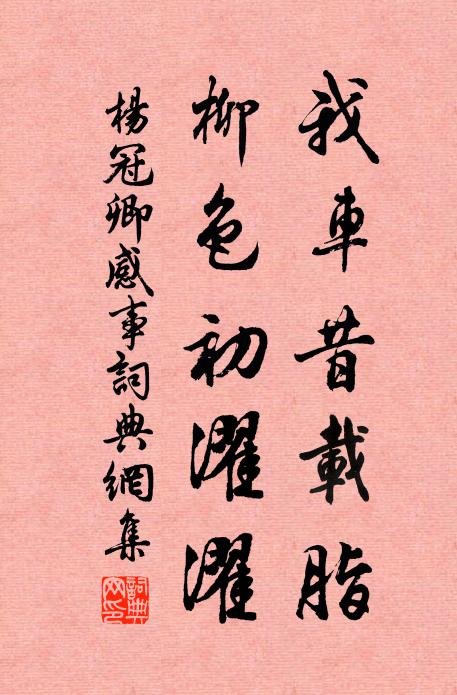 我車昔載脂
柳色初濯濯
楊冠卿感事詞典網集
詞典網印